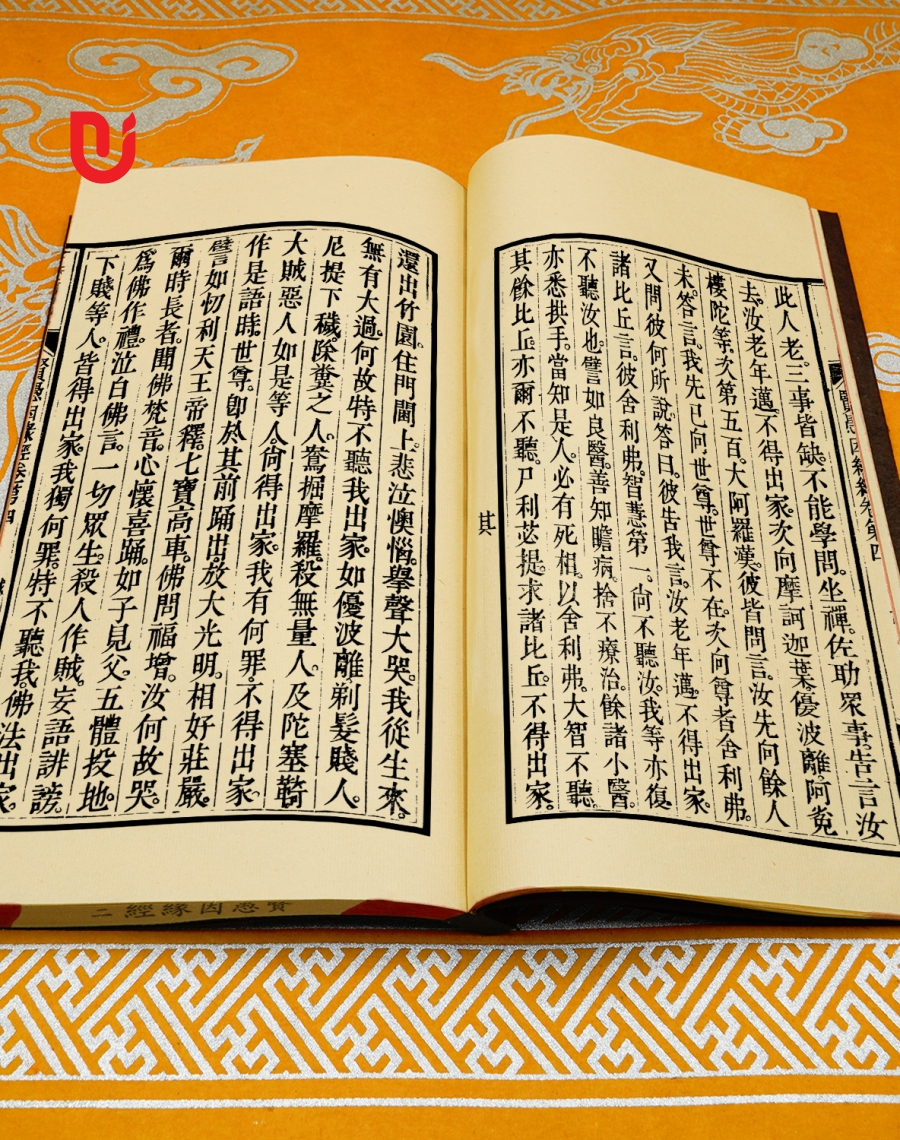 賢愚因緣經卷第四
此人老。三事皆缺。不能學問。坐禪。佐助眾事。告言汝
去。汝老年邁。不得出家。次向摩訶迦葉。優波離。阿㝹
樓陀等。次第五百。大阿羅漢。彼皆問言。汝先向餘人
未。答言。我先已向世尊。世尊不在。次向尊者舍利弗。
又問彼何所說。答曰。彼告我言。汝老年邁。不得出家
諸比丘言。彼舍利弗。智慧第一。尙不聽汝。我等亦復
不聽汝也。譬如良醫。善知瞻病。捨不療治。餘諸小醫。
亦悉拱手。當知是人。必有死相。以舍利弗。大智不聽。
其餘比丘。亦爾不聽。尸利苾提。求諸比丘。不得出家。
其
還出竹園。住門閫上。悲泣懊惱。舉聲大哭。我從生來。
無有大過。何故特不聽我出家。如優波離剃髮賤人。
尼提下穢。除糞之人。鴦掘摩羅殺無量人。及陀塞䩭
大賊惡人。如是等人。尙得出家。我有何罪。不得出家
作是語時。世尊。卽於其前踊出。放大光明。相好莊嚴。
譬如忉利天王帝釋。七寶高車。佛問福增。汝何故哭。
爾時長者。聞佛梵音。心懷喜踊。如子見父。五體投地。
爲佛作禮。泣白佛言。一切眾生。殺人作賊。妄語誹謗。
下賤等人。皆得出家。我獨何罪。特不聽我佛法出家。
賢愚因緣經卷第四
賢愚因緣經二